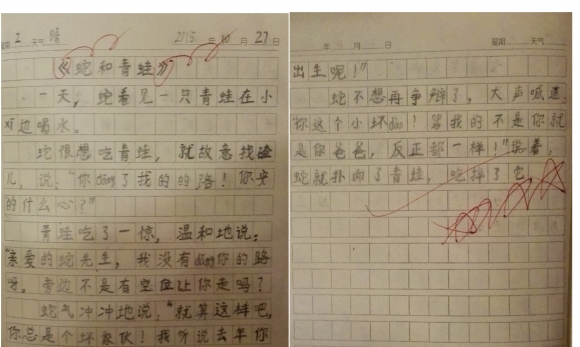 星期2 天气 晴 2015年10月27日
《蛇和青蛙》
一天，蛇看见一只青蛙在小
河边喝水。
蛇很想吃青蛙，就故意找
儿，说："你dǎng了我的的路！你安
的什么心？"
青蛙吃了一惊，温和地说：
"亲爱的蛇先生，我没有dǎng你的路
呀，旁边不是有空位让你走吗？
蛇气冲冲地说："就算这样吧，
你总是个坏家伙！我听说去年你
年 月 日 星期 天气
出生呢！"
蛇不想再争辩了，大声吼道：
你这个小坏dàn！骂我的不是你就
是你爸爸，反正都一样！"说着，
蛇就扑向了青蛙，吃掉了它。